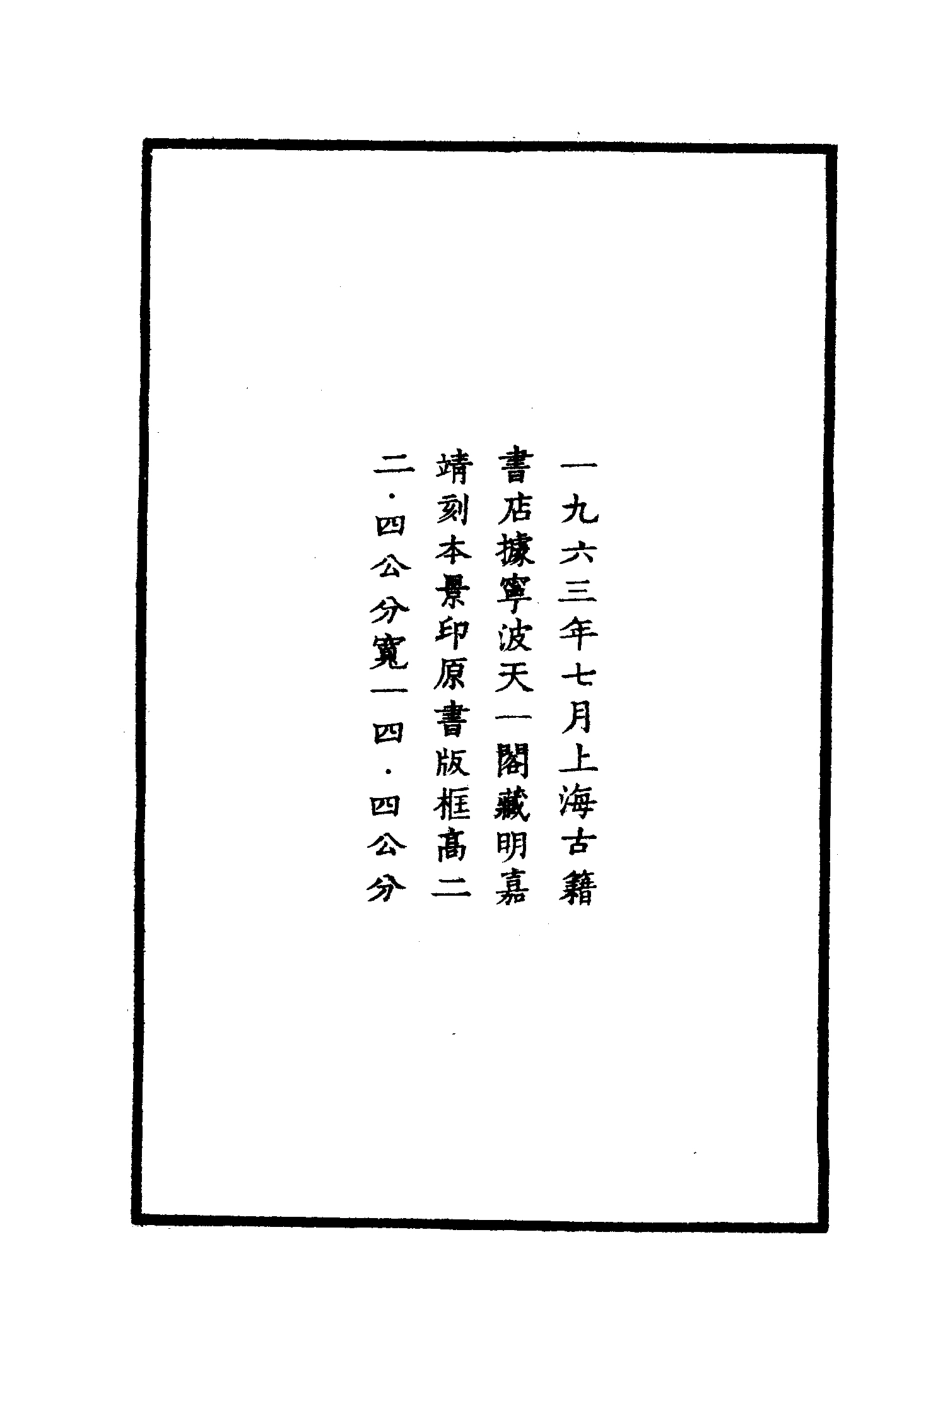 一九六三年七月上海古籍
書店據寧波天一閣藏明嘉
靖刻本景印原書版框高二
二·四公分寬一四·四公分